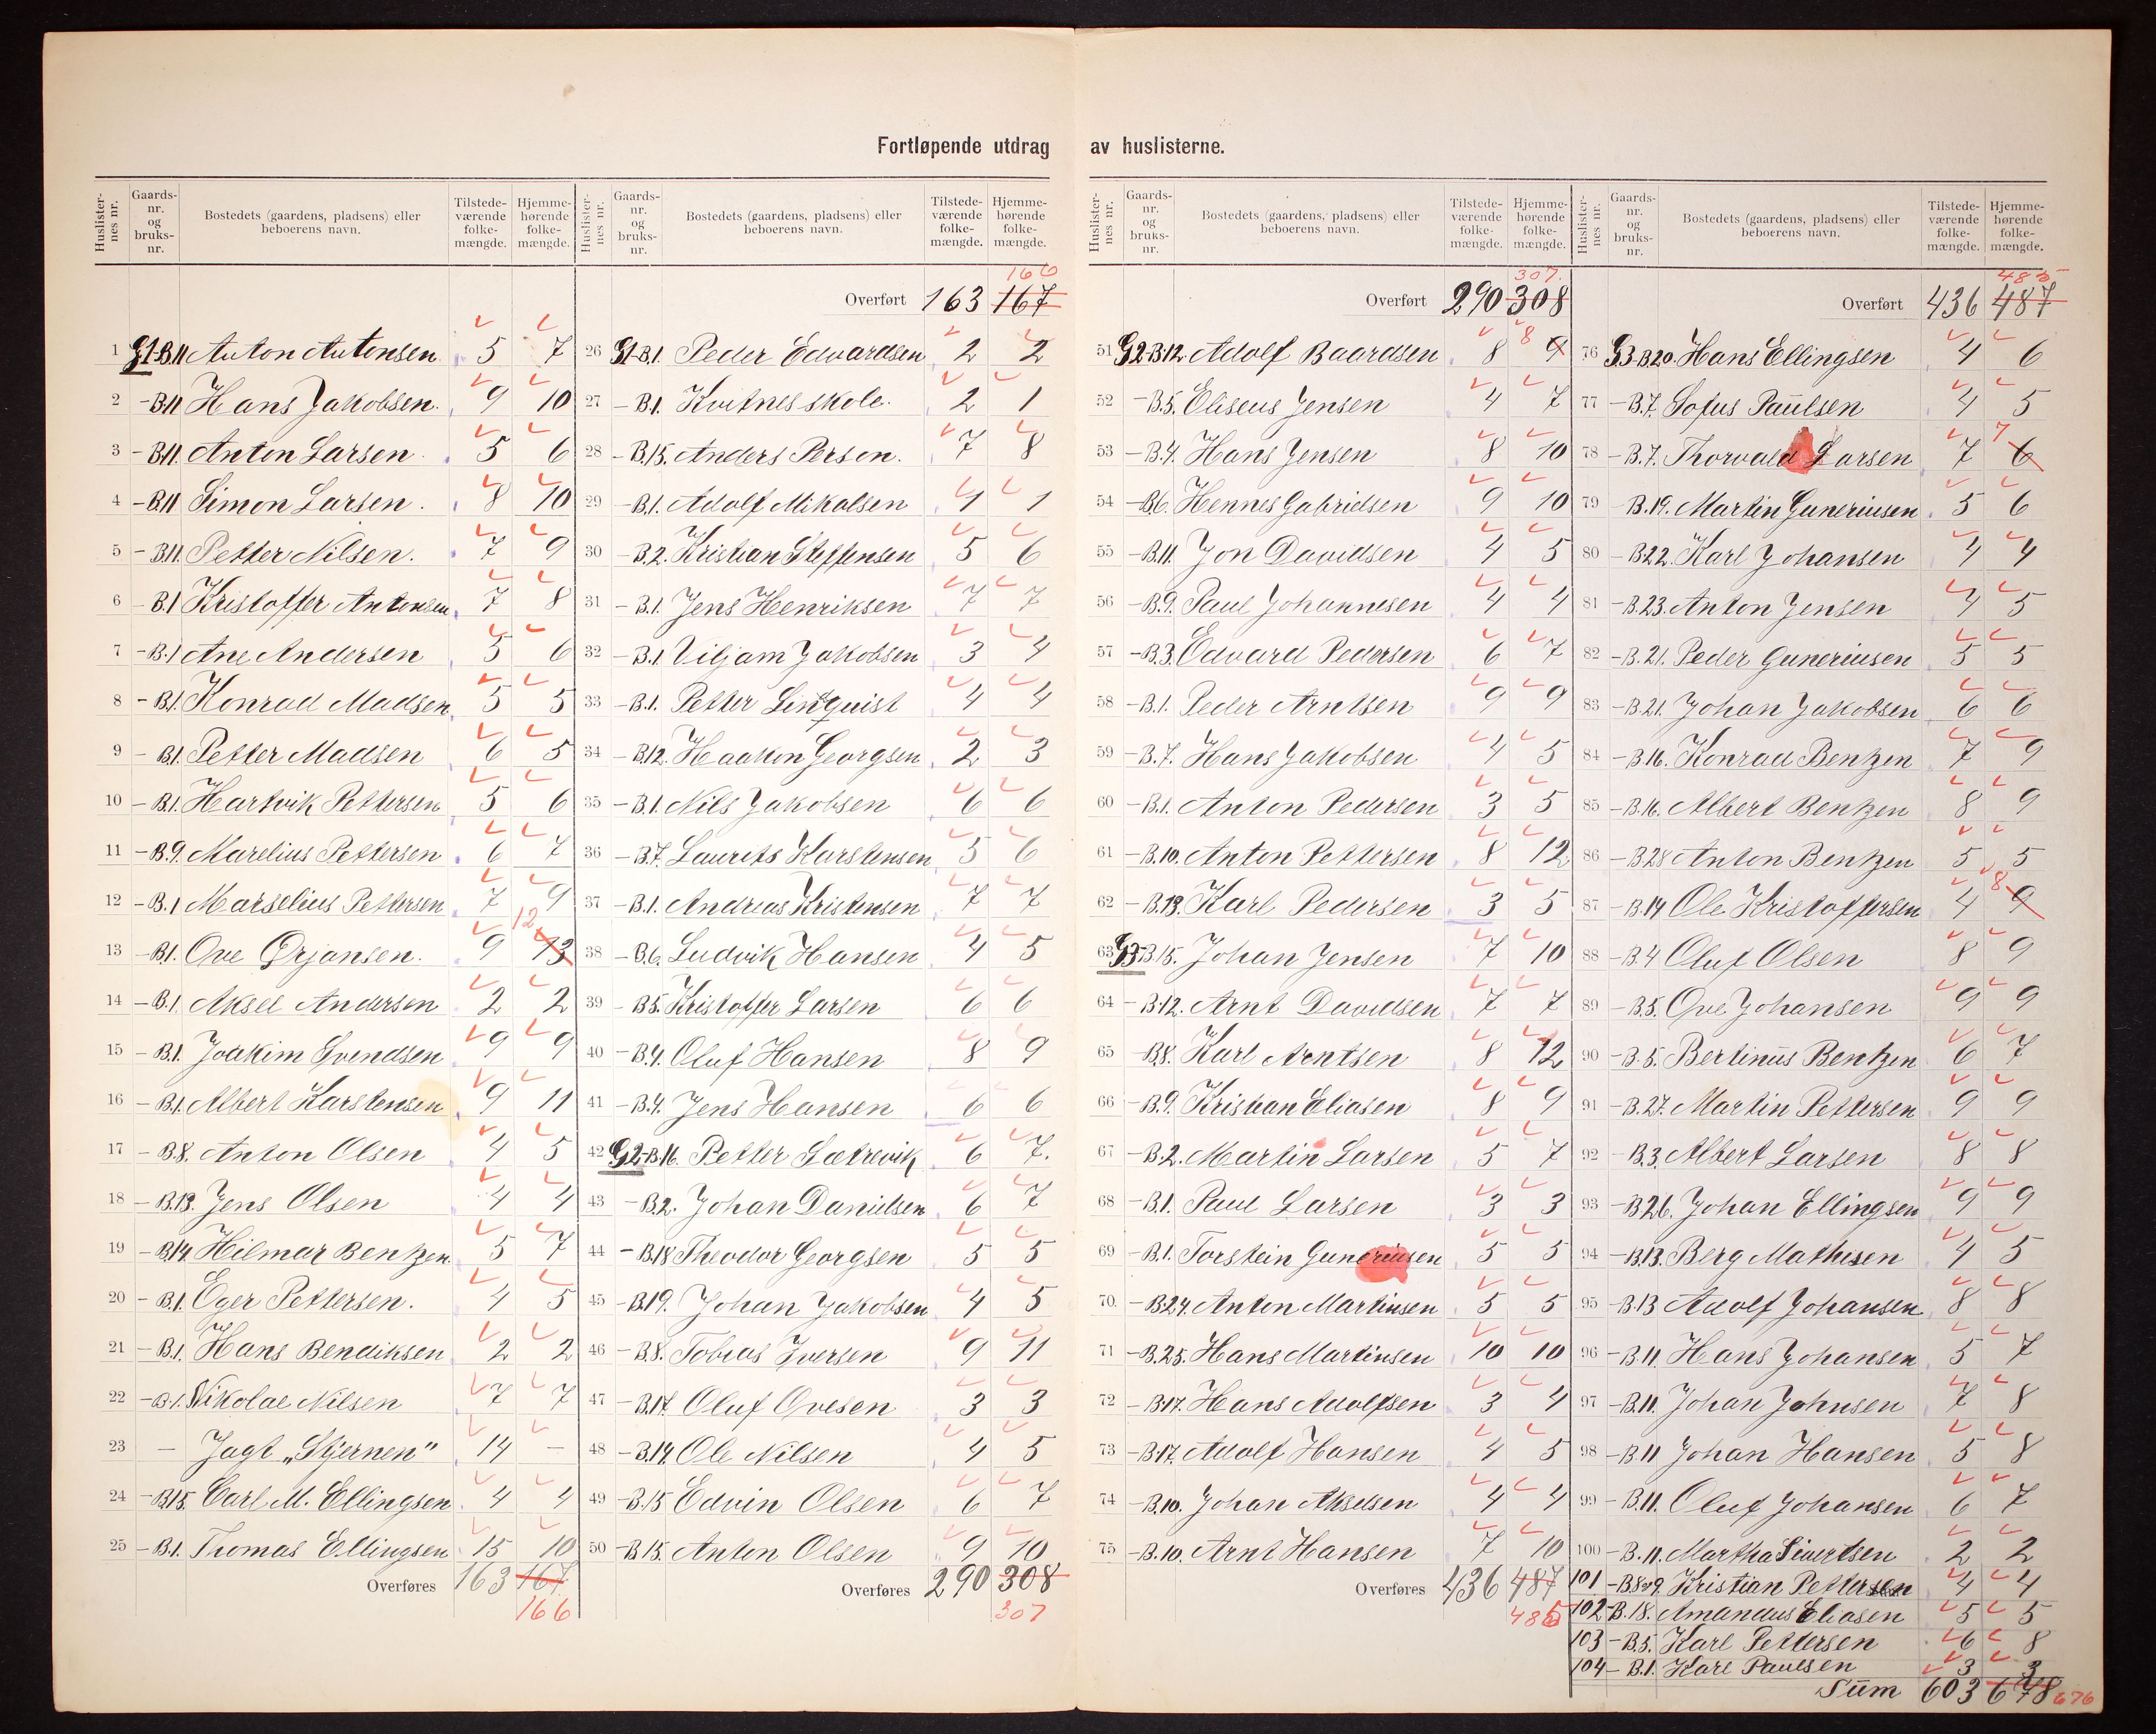 Fortløpende utdrag av huslisterne.
Huslister-nes nr. Gaards-nr. og bruks-nr. Bostedets (gaardens, pladsens) eller beboerens navn. Tilstede-værende folke-mængde. Hjemme-hørende folke-mængde.
1 G1-B.11 Anton Antonsen 5 7
2 - B.11 Hans Jakobsen. 9 10
3 - B.11. Anton Larsen. 5 6
4 - B.11 Simon Larsen. 8 10
5 - B.11. Petter Nilsen. 7 9
6 - B.1 Kristoffer Antonsen 7 8
7 - B.1 Ane Andersen 5 6
8 - B.1. Konrad Madsen 5 5
9 - B.1. Petter Madsen 6 5
10 - B.1. Hartvik Pettersen 5 6
11 - B.9. Marelius Pettersen 6 7
12 - B.1 Marselius Pettersen 7 9
13 - B.1. Ove Ørjansen. 9 13 12
14 - B.1. Aksel Andersen 2 2
15 - B.1. Joakim Svendsen 9 9
16 - B.1. Albert Karstensen 9 11
17 - B.8. Anton Olsen 4 5
18 - B.13. Jens Olsen 4 4
19 - B.14. Hilmar Bentzen. 5 7
20 - B.1. Eger Pettersen. 4 5
21 - B.1. Hans Bendiksen 2 2
22 - B.1. Nikolae Nilsen 7 7
23 - Jagt „Stjernen" 14 -
24 - B.15. Carl M. Ellingsen 4 4
25 - B.1. Thomas Ellingsen 15 10
Overføres 163 167
166
Huslister-nes nr. Gaards-nr. og bruks-nr. Bostedets (gaardens, pladsens) eller beboerens navn. Tilstede-værende folke-mængde. Hjemme-hørende folke-mængde.
166
Overført 163 167
26 G1-B.1. Peder Edvardsen 2 2
27 - B.1. Kvitnes skole. 2 1
28 - B.15. Anders Person. 7 8
29 - B.1. Adolf Mikalsen 1 1
30 - B.2. Kristian Steffensen 5 6
31 - B.1. Jens Henriksen 7 7
32 - B.1. Viljam Jakobsen 3 4
33 - B.1. Petter Linquist 4 4
34 - B.12. Haakon Georgsen 2 3
35 - B.1. Nils Jakobsen 6 6
36 - B.7. Laurits Karstensen 5 6
37 - B.1. Andreas Kristensen 7 7
38 - B.6. Ludvik Hansen 4 5
39 - B.5. Kristoffer Larsen 6 6
40 - B.4. Oluf Hansen 8 9
41 - B.4. Jens Hansen 6 6
42 G2-B.16. Petter Sætrevik 6 7.
43 - B.2. Johan Danielsen 6 7
44 - B.18 Theodor Georgsen 5 5
45 - B.19. Johan Jakobsen 4 5
46 - B.8. Tobias Iversen 9 11
47 - B.17. Oluf Ovesen 3 3
48 - B.14. Ole Nilsen 4 5
49 - B.15 Edvin Olsen 6 7
50 - B.15. Anton Olsen 9 10
Overføres 290 308
307
Huslister-nes nr. Gaards-nr. og bruks-nr. Bostedets (gaardens, pladsens) eller beboerens navn. Tilstede-værende folke-mængde. Hjemme-hørende folke-mængde.
307.
Overført 290 308
51 G2-B.12. Adolf Baardsen 8 9 8
52 - B.5. Eliseus Jensen 4 7
53 - B.4. Hans Jensen 8 10
54 - B.6. Hennes Gabrielsen 9 10
55 - B.11. Jon Davidsen 4 5
56 - B.9. Paul Johannesen 4 4
57 - B.3. Edvard Pedersen 6 7
58 - B.1. Peder Arntsen 9 9
59 - B.7. Hans Jakobsen 4 5
60 - B.1. Anton Pedersen 3 5
61 - B.10. Anton Pettersen 8 12
62 - B.13. Karl Pedersen 3 5
63 G3-B.15. Johan Jensen 7 10
64 - B.12. Arnt Davidsen 7 7
65 - B.8. Karl Arntsen 8 12
66 - B.9. Kristian Eliasen 8 9
67 - B.2. Martin Larsen 5 7
68 - B.1. Paul Larsen 3 3
69 - B.1. Torstein Guneriusen 5 5
70. - B.24. Anton Martinsen 5 5
71 - B.25. Hans Martinsen 10 10
72 - B.17. Hans Adolfsen 3 4
73 - B.17. Adolf Hansen 4 5
74 - B.10. Johan Akselsen 4 4
75 - B.10. Arnt Hansen 7 10
Overføres 436 487
485
Huslister-nes nr. Gaards-nr. og bruks-nr. Bostedets (gaardens, pladsens) eller beboerens navn. Tilstede-værende folke-mængde. Hjemme-hørende folke-mængde.
485
Overført 436 487
76 G3-B.20. Hans Ellingsen 4 6
77 - B.7. Sofus Paulsen 4 5
78 - B.7. Thorvald Larsen 7 6 7
79 - B.19. Martin Guneriusen 5 6
80 - B.22. Karl Johansen 4 4
81 - B.23. Anton Jensen 4 5
82 - B.21. Peder Guneriusen 5 5
83 - B.21. Johan Jakobsen 6 6
84 - B.16. Konrad Bentzen 7 9
85 - B.16. Albert Bentzen 8 9
86 - B.28 Anton Bentzen 5 5
87 - B.14 Ole Kristoffersen 4 9 8
88 - B.4 Oluf Olsen 8 9
89 - B.5. Ove Johansen 9 9
90 - B.5. Bertinus Bentzen 6 7
91 - B.27. Martin Pettersen 9 9
92 - B.3. Albert Larsen 8 8
93 - B.26. Johan Ellingsen 9 9
94 - B.13. Berg Mathisen 4 5
95 - B.13 Adolf Johansen 8 8
96 - B.11. Hans Johansen 5 7
97 - B.11. Johan Johnsen 7 8
98 - B.11 Johan Hansen 5 8
99 - B.11. Oluf Johansen 6 7
100 - B.11. Martha Sivertsen 2 2
101 - B.8 og 9. Kristian Pettersen 4 4
102 - B.18. Amandus Eliasen 5 5
103 - B.5. Karl Pettersen 6 8
104 - B.1. Karl Paulsen 3 3
Sum 603 678 676